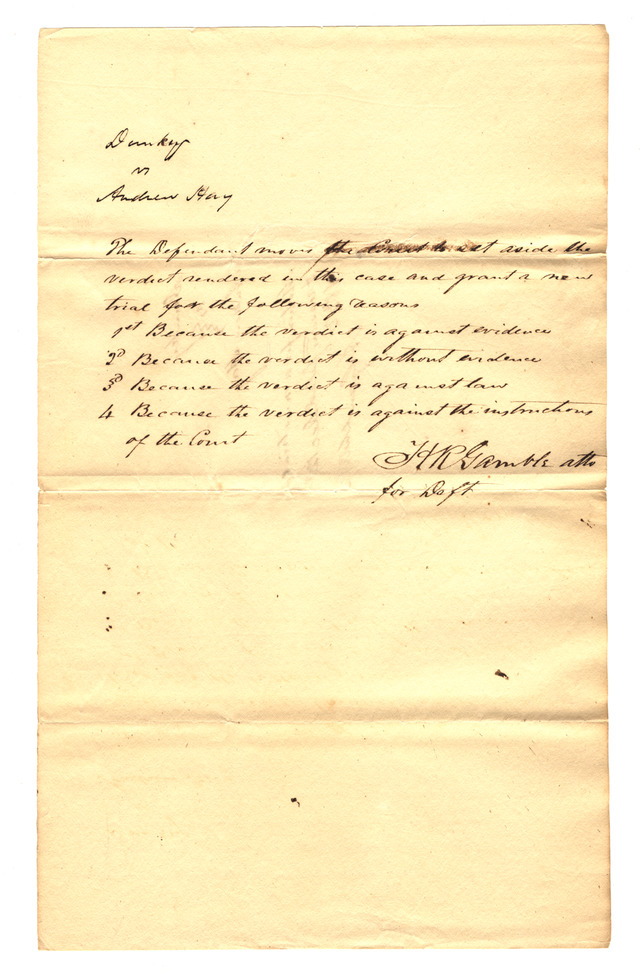 Dunky
vs
Andrew Hay
The Defendant moves the Court to set aside the
verdict rendered in this case and grant a new
trial for the following reasons
1st Because the verdict is against evidence
2d Because the verdict is without evidence
3d Because the verdict is against law
4 Because the verdict is against the instructions
of the Court
H R Gamble atto
for Deft